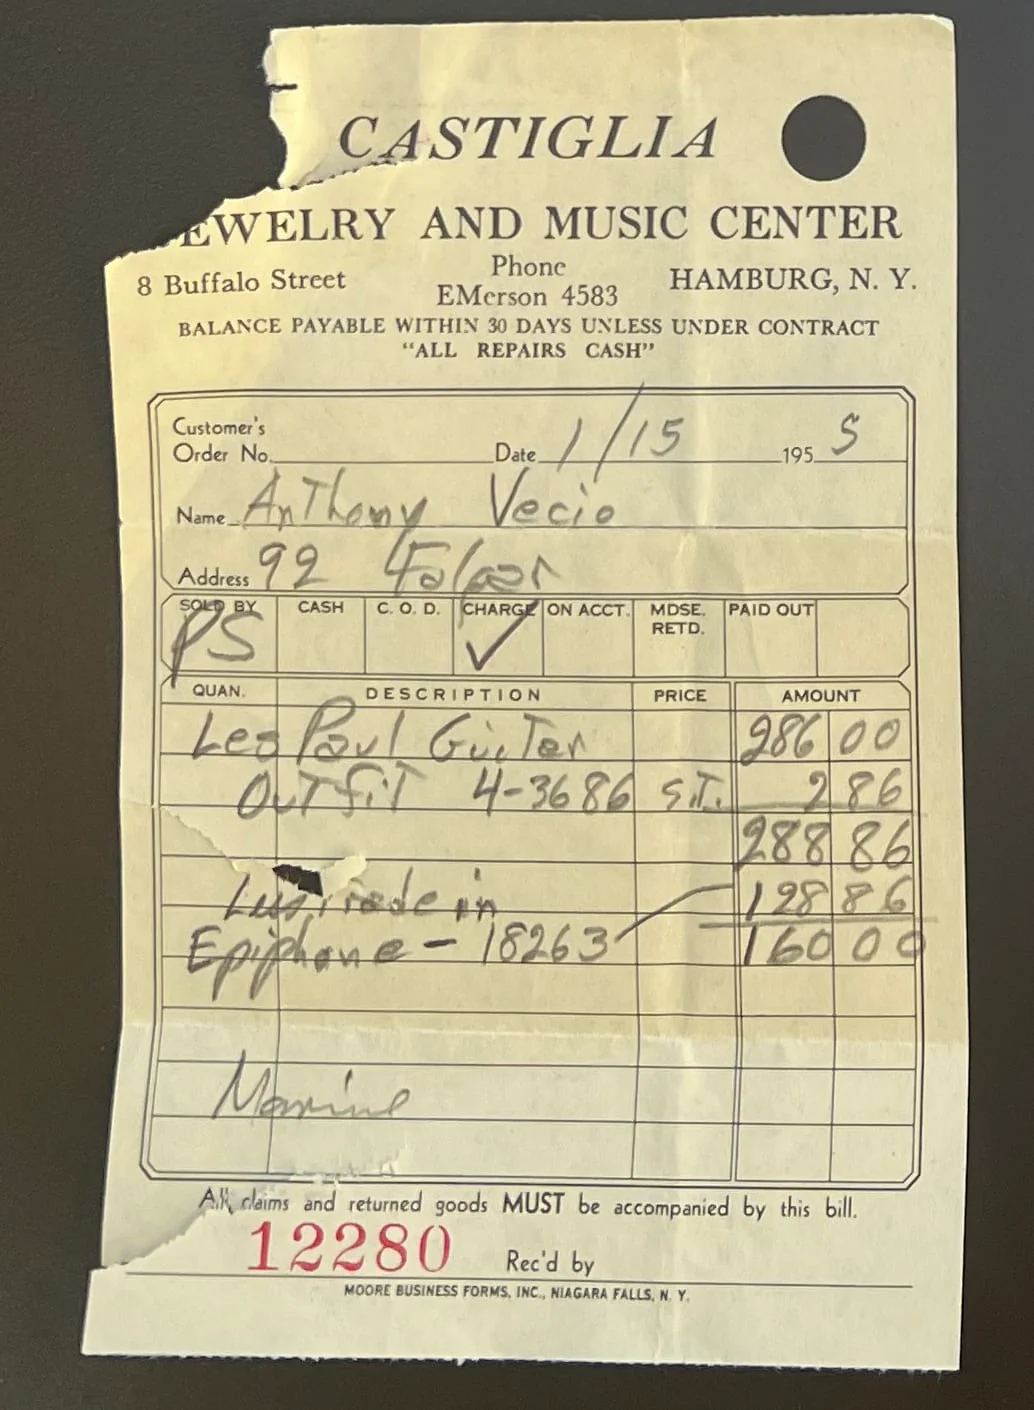 CASTIGLIA
EWELRY AND MUSIC CENTER
8 Buffalo Street
Phone
EMerson 4583
HAMBURG, N. Y.
BALANCE PAYABLE WITHIN 30 DAYS UNLESS UNDER CONTRACT
"ALL REPAIRS CASH"
Customer's
Order No. Date 1/15 195 5
Name Anthony Vecio
Address 92
SOLD BY CASH C. O. D. CHARGE ON ACCT. MDSE. RETD. PAID OUT
PS ✓
QUAN. DESCRIPTION PRICE AMOUNT
Les Paul Guitar 286 00
Outfit 4-3686 S.T. 2 86
288 86
Trade in 128 86
Epiphone - 18263 160 00
All claims and returned goods MUST be accompanied by this bill.
12280 Rec'd by
MOORE BUSINESS FORMS, INC., NIAGARA FALLS, N. Y.